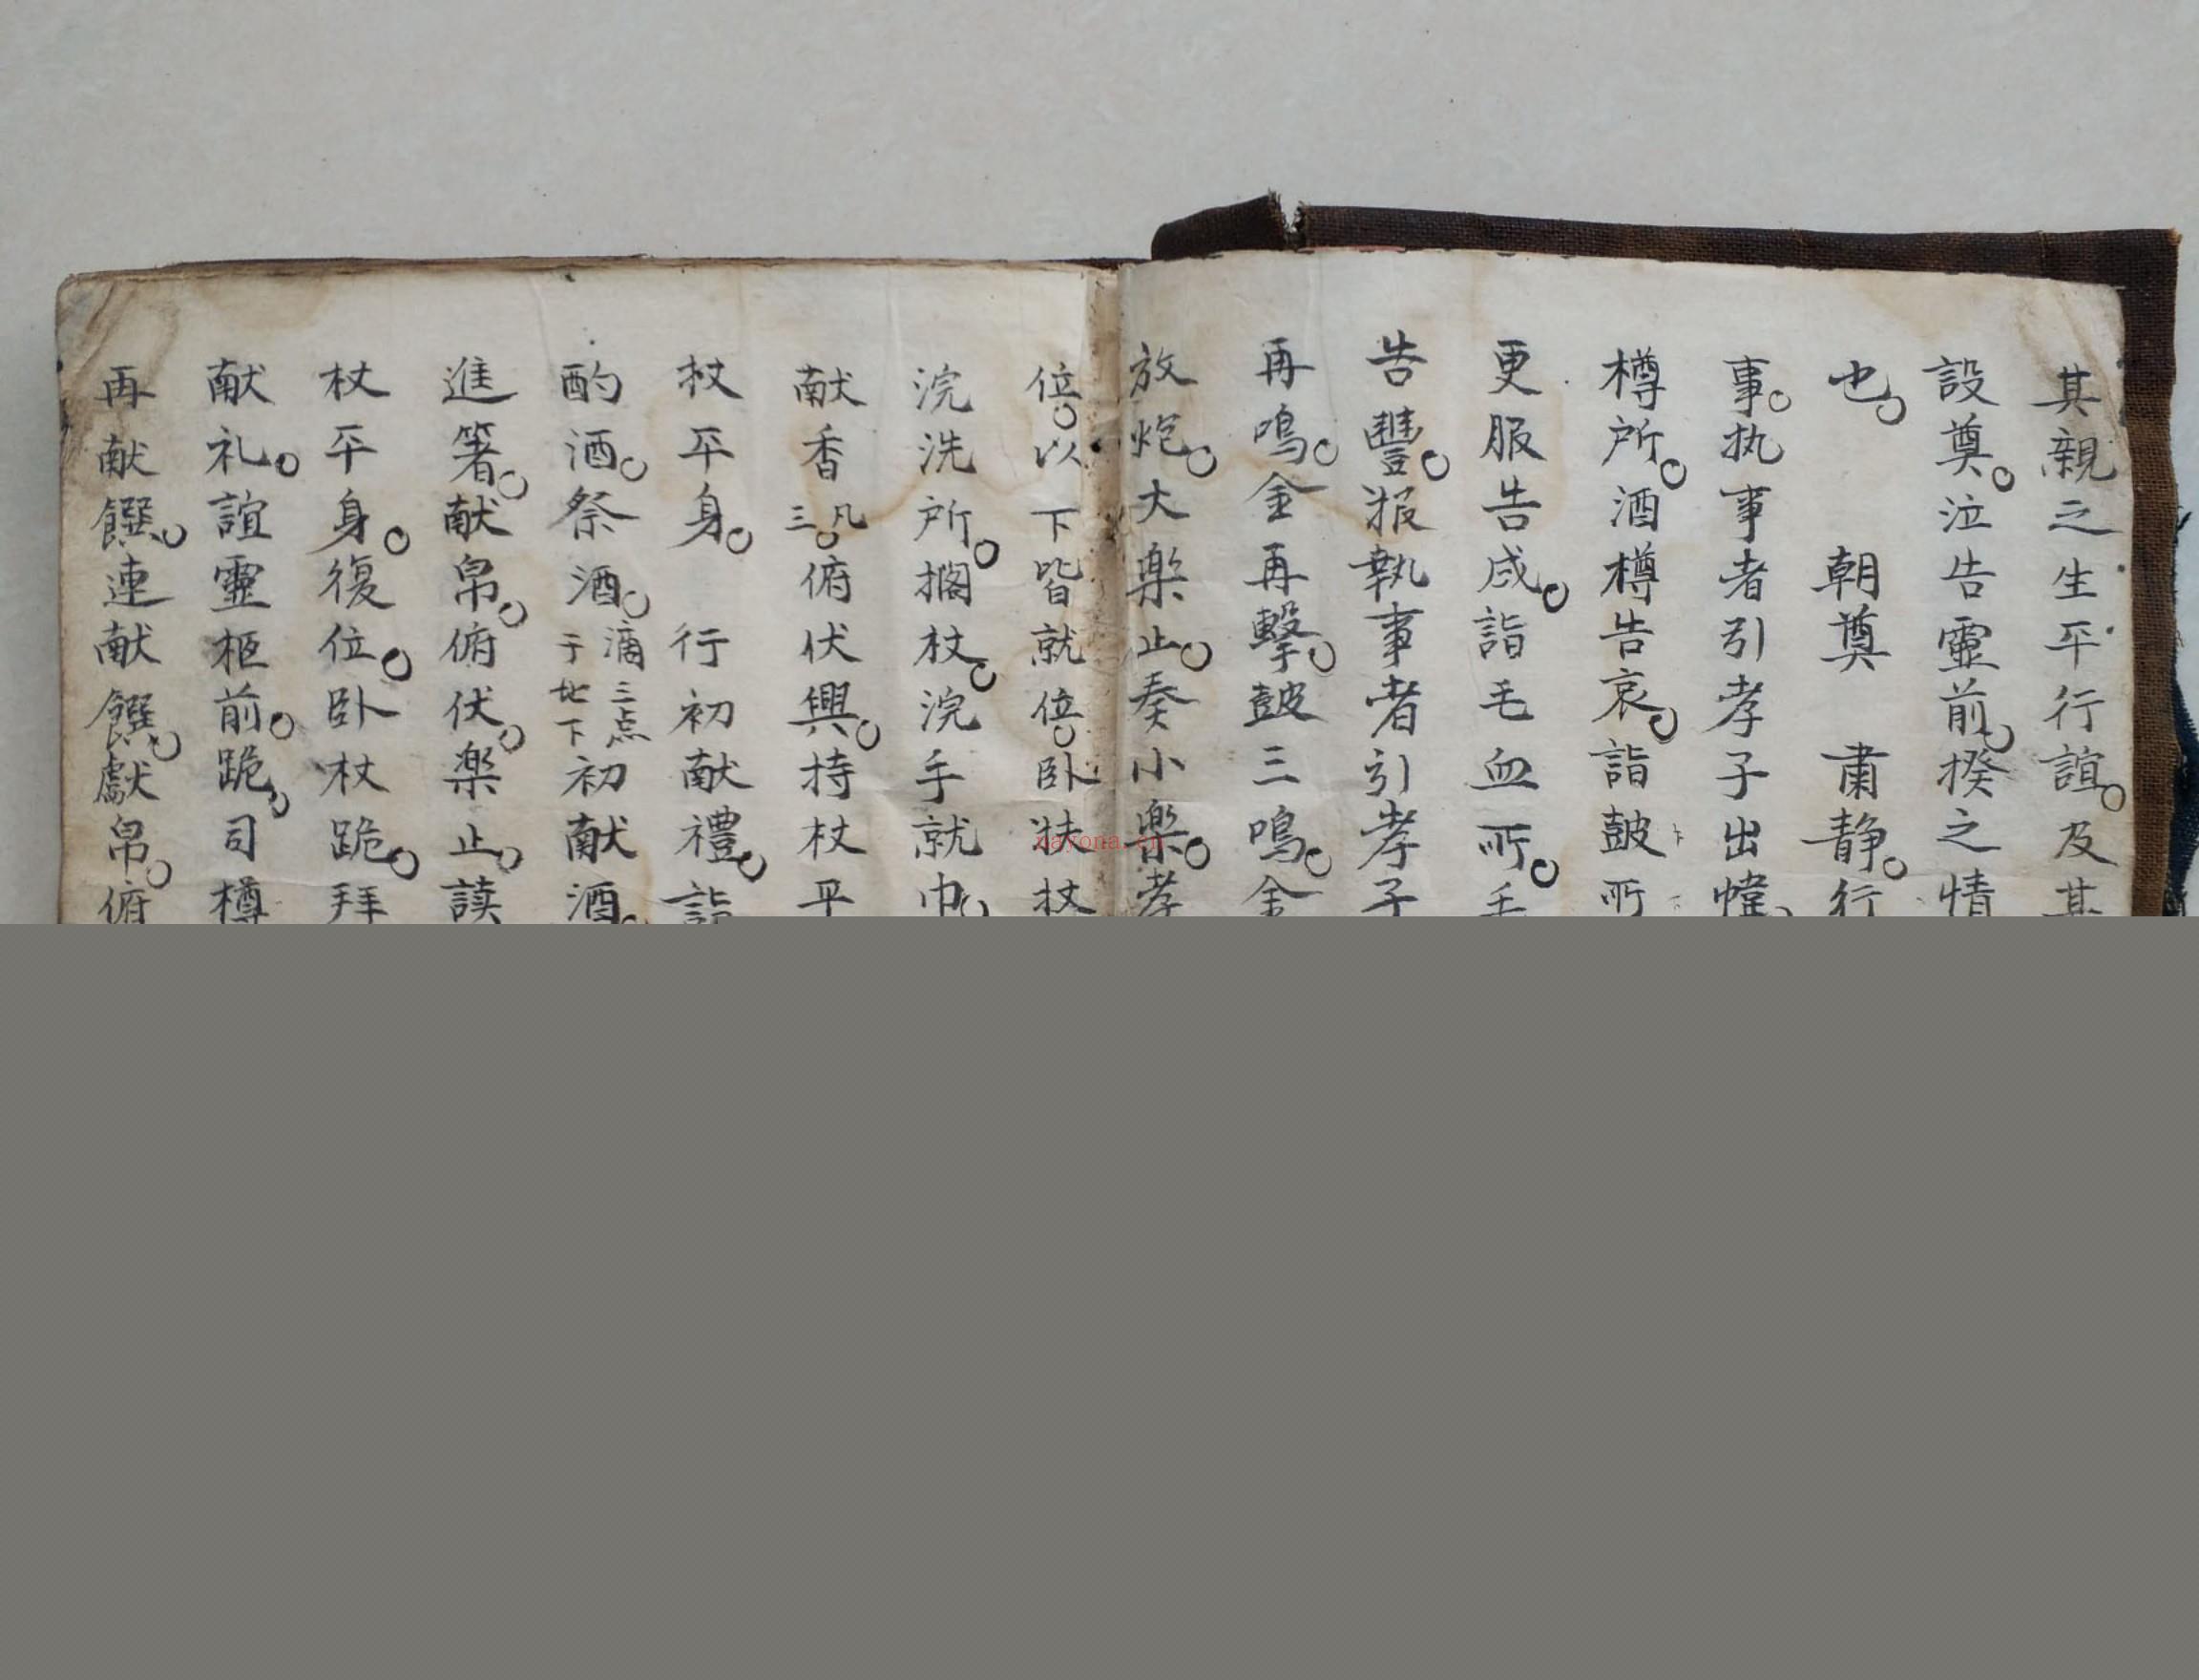 其親之生平行誼。及其
設奠。泣告靈前。揆之情
也。朝奠 肅静。行
事。执事者引孝子出幃。
樽所。酒樽告哀。詣鼓所
更服告成。詣毛血所。毛
告豐。报執事者引孝子
再鳴。金再擊。鼓三鳴。金
放炮。大楽止。奏小楽。孝
位。以下皆就位。卧扙杖
浣洗所。搁杖。浣手就巾。
献香凡三。俯伏興。持杖平
杖平身。行初献禮。詣
酌酒。祭酒。滴三点于地下初献酒。
進箸。献帛。俯伏。楽止。讀
杖平身。復位。卧杖跪。拜
献礼。誼靈柩前。跪。司樽
再献饌。連献饌。獻帛。俯
nayona.cn